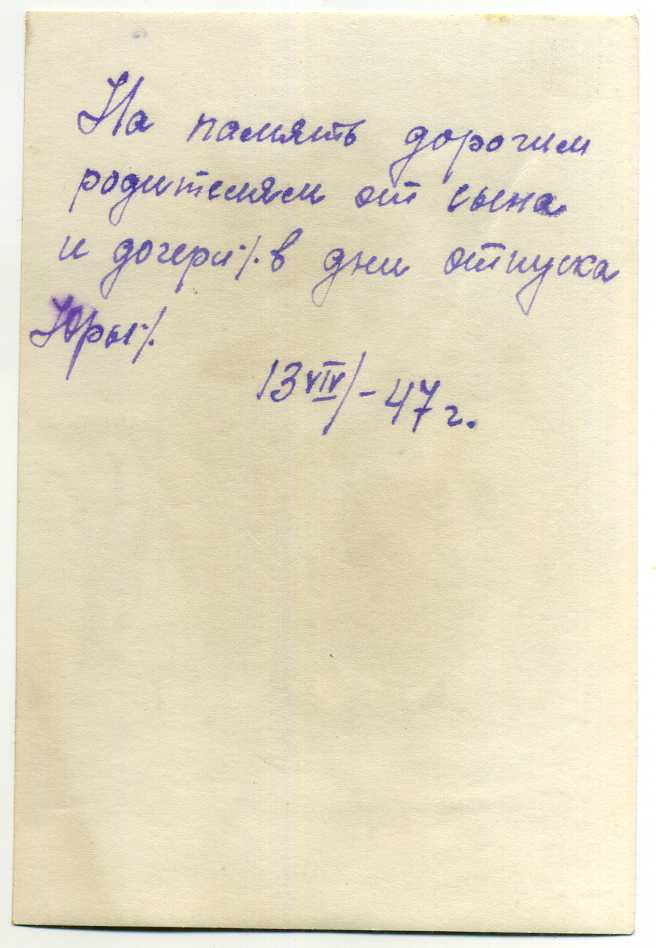 На память дорогим
родителям от сына
и дочери ·/. в дни отпуска
Юры ·/.
13 VIV/-47 г.